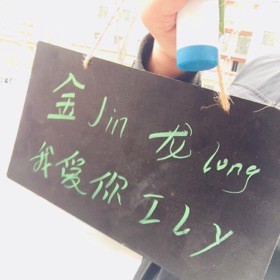 金Jin 龙long
我爱你ILY